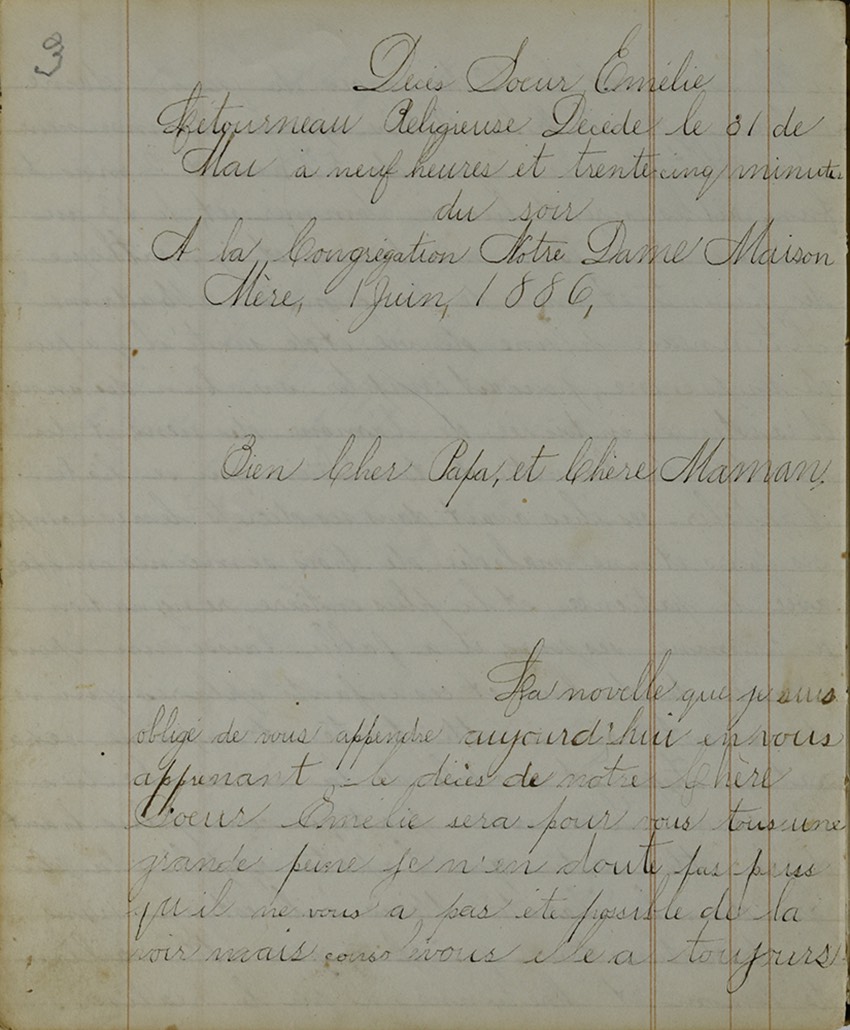 3
Décès Soeur Emélie
Létourneau Religieuse Décéde le 31 de
Mai à neuf heures et trente cinq minutes
du soir
A la Congrégation Notre Dame Maison
Mère, 1 Juin, 1886,
Bien Cher Papa, et Chère Maman,
La novelle que je suis
obligé de vous appendre aujourd'hui en vous
apprenant le décès de notre Chère
Soeur Emélie sera pour vous tous une
grande peine je n'en doute pas puis
qu'il ne vous a pas été possible de la
voir mais vous elle a toujours